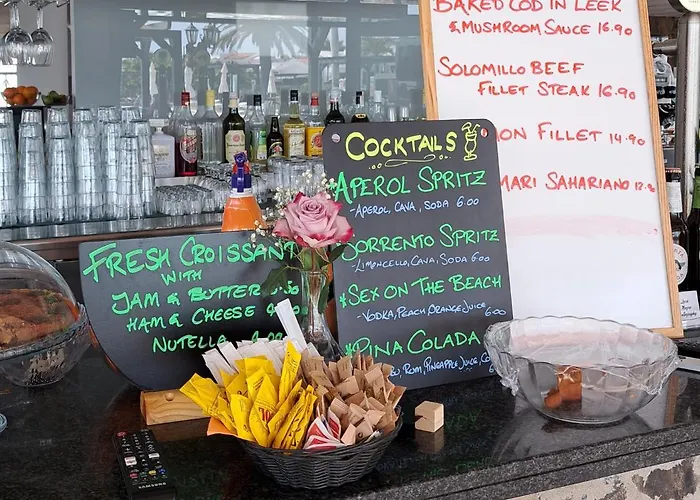 BAKED COD IN LEEK
& MUSHROOM SAUCE 16.90
SOLOMILLO BEEF
FILLET STEAK 16.90
FILLET 14.90
SAHARIANO
COCKTAILS
APEROL SPRITZ
- APEROL, CAVA, SODA 6.00
SORRENTO SPRITZ
- LIMONCELLO, CAVA, SODA 6.00
*SEX ON THE BEACH
- VODKA, PEACH, ORANGE JUICE, 6.00
*PINA COLADA
RUM, PINEAPPLE JUICE,
6.00
FRESH CROISSANT
WITH
JAM & BUTTER
HAM & CHEESE
NUTELLA
SAMSUNG